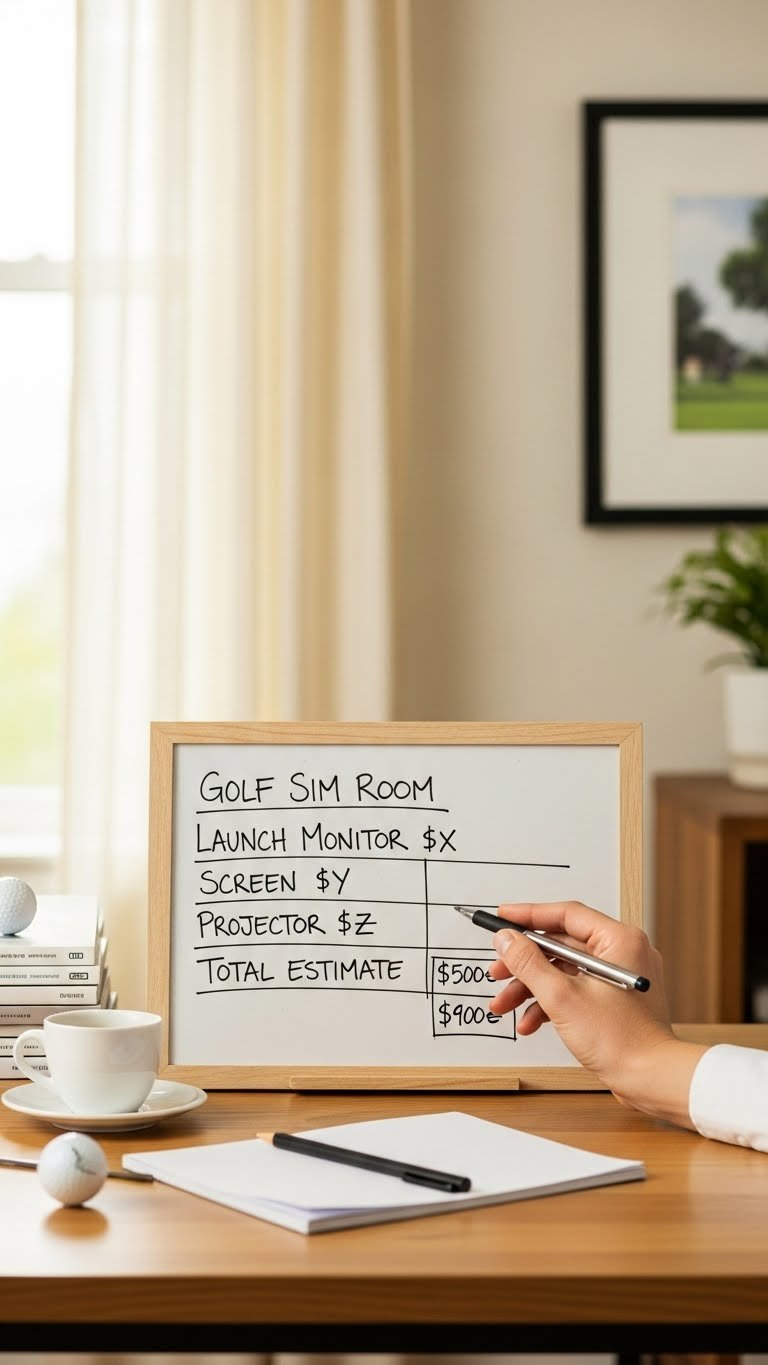 GOLF SIM ROOM
LAUNCH MONITOR $X
SCREEN $Y
PROJECTOR $Z
TOTAL ESTIMATE $500€
$900€